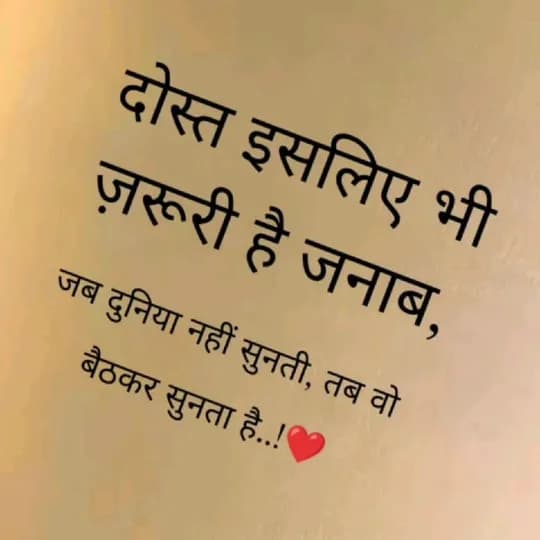 दोस्त इसलिए भी
ज़रूरी है जनाब,
जब दुनिया नहीं सुनती, तब वो
बैठकर सुनता है..!❤️